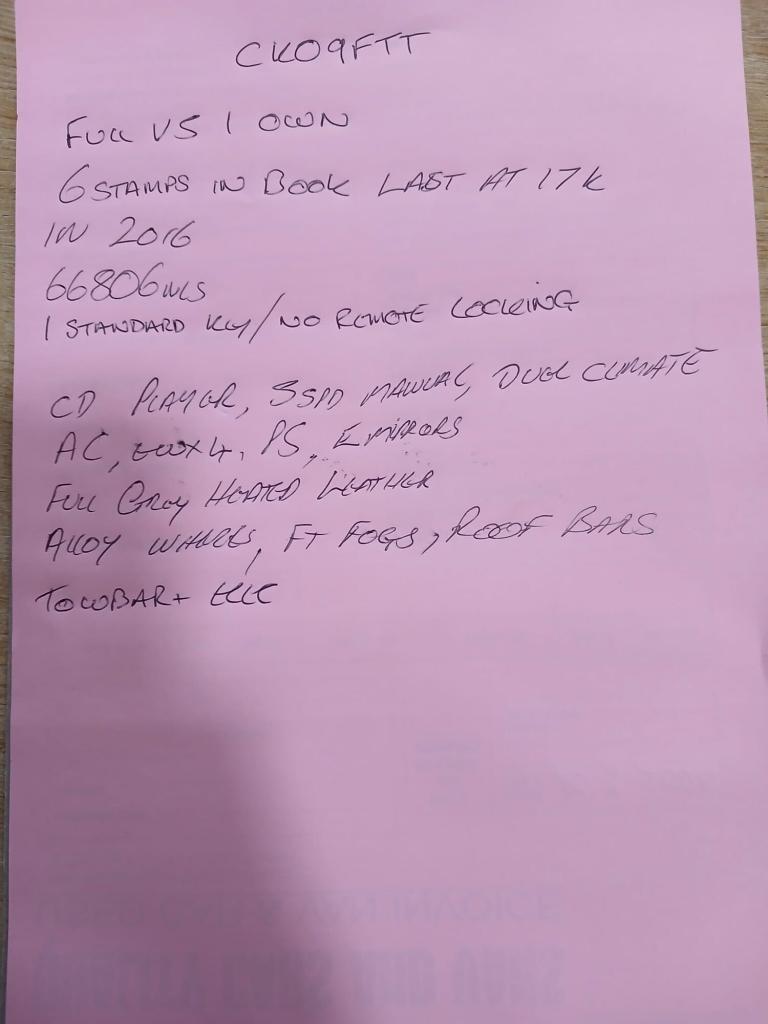 CK09FTT
FULL VS 1 OWN
6 STAMPS IN BOOK LAST AT 17K
IN 2016
66806MLS
1 STANDARD KEY/NO REMOTE LOCKING
CD PLAYER, 5SPD MANUAL, DUEL CLIMATE
AC, EWX4, PS, E MIRRORS
FULL GREY HEATED LEATHER
ALLOY WHEELS, FT FOGS, ROOF BARS
TOWBAR+ ELEC
USED CAR & VAN INVOICE
QUALITY CARS AND VANS